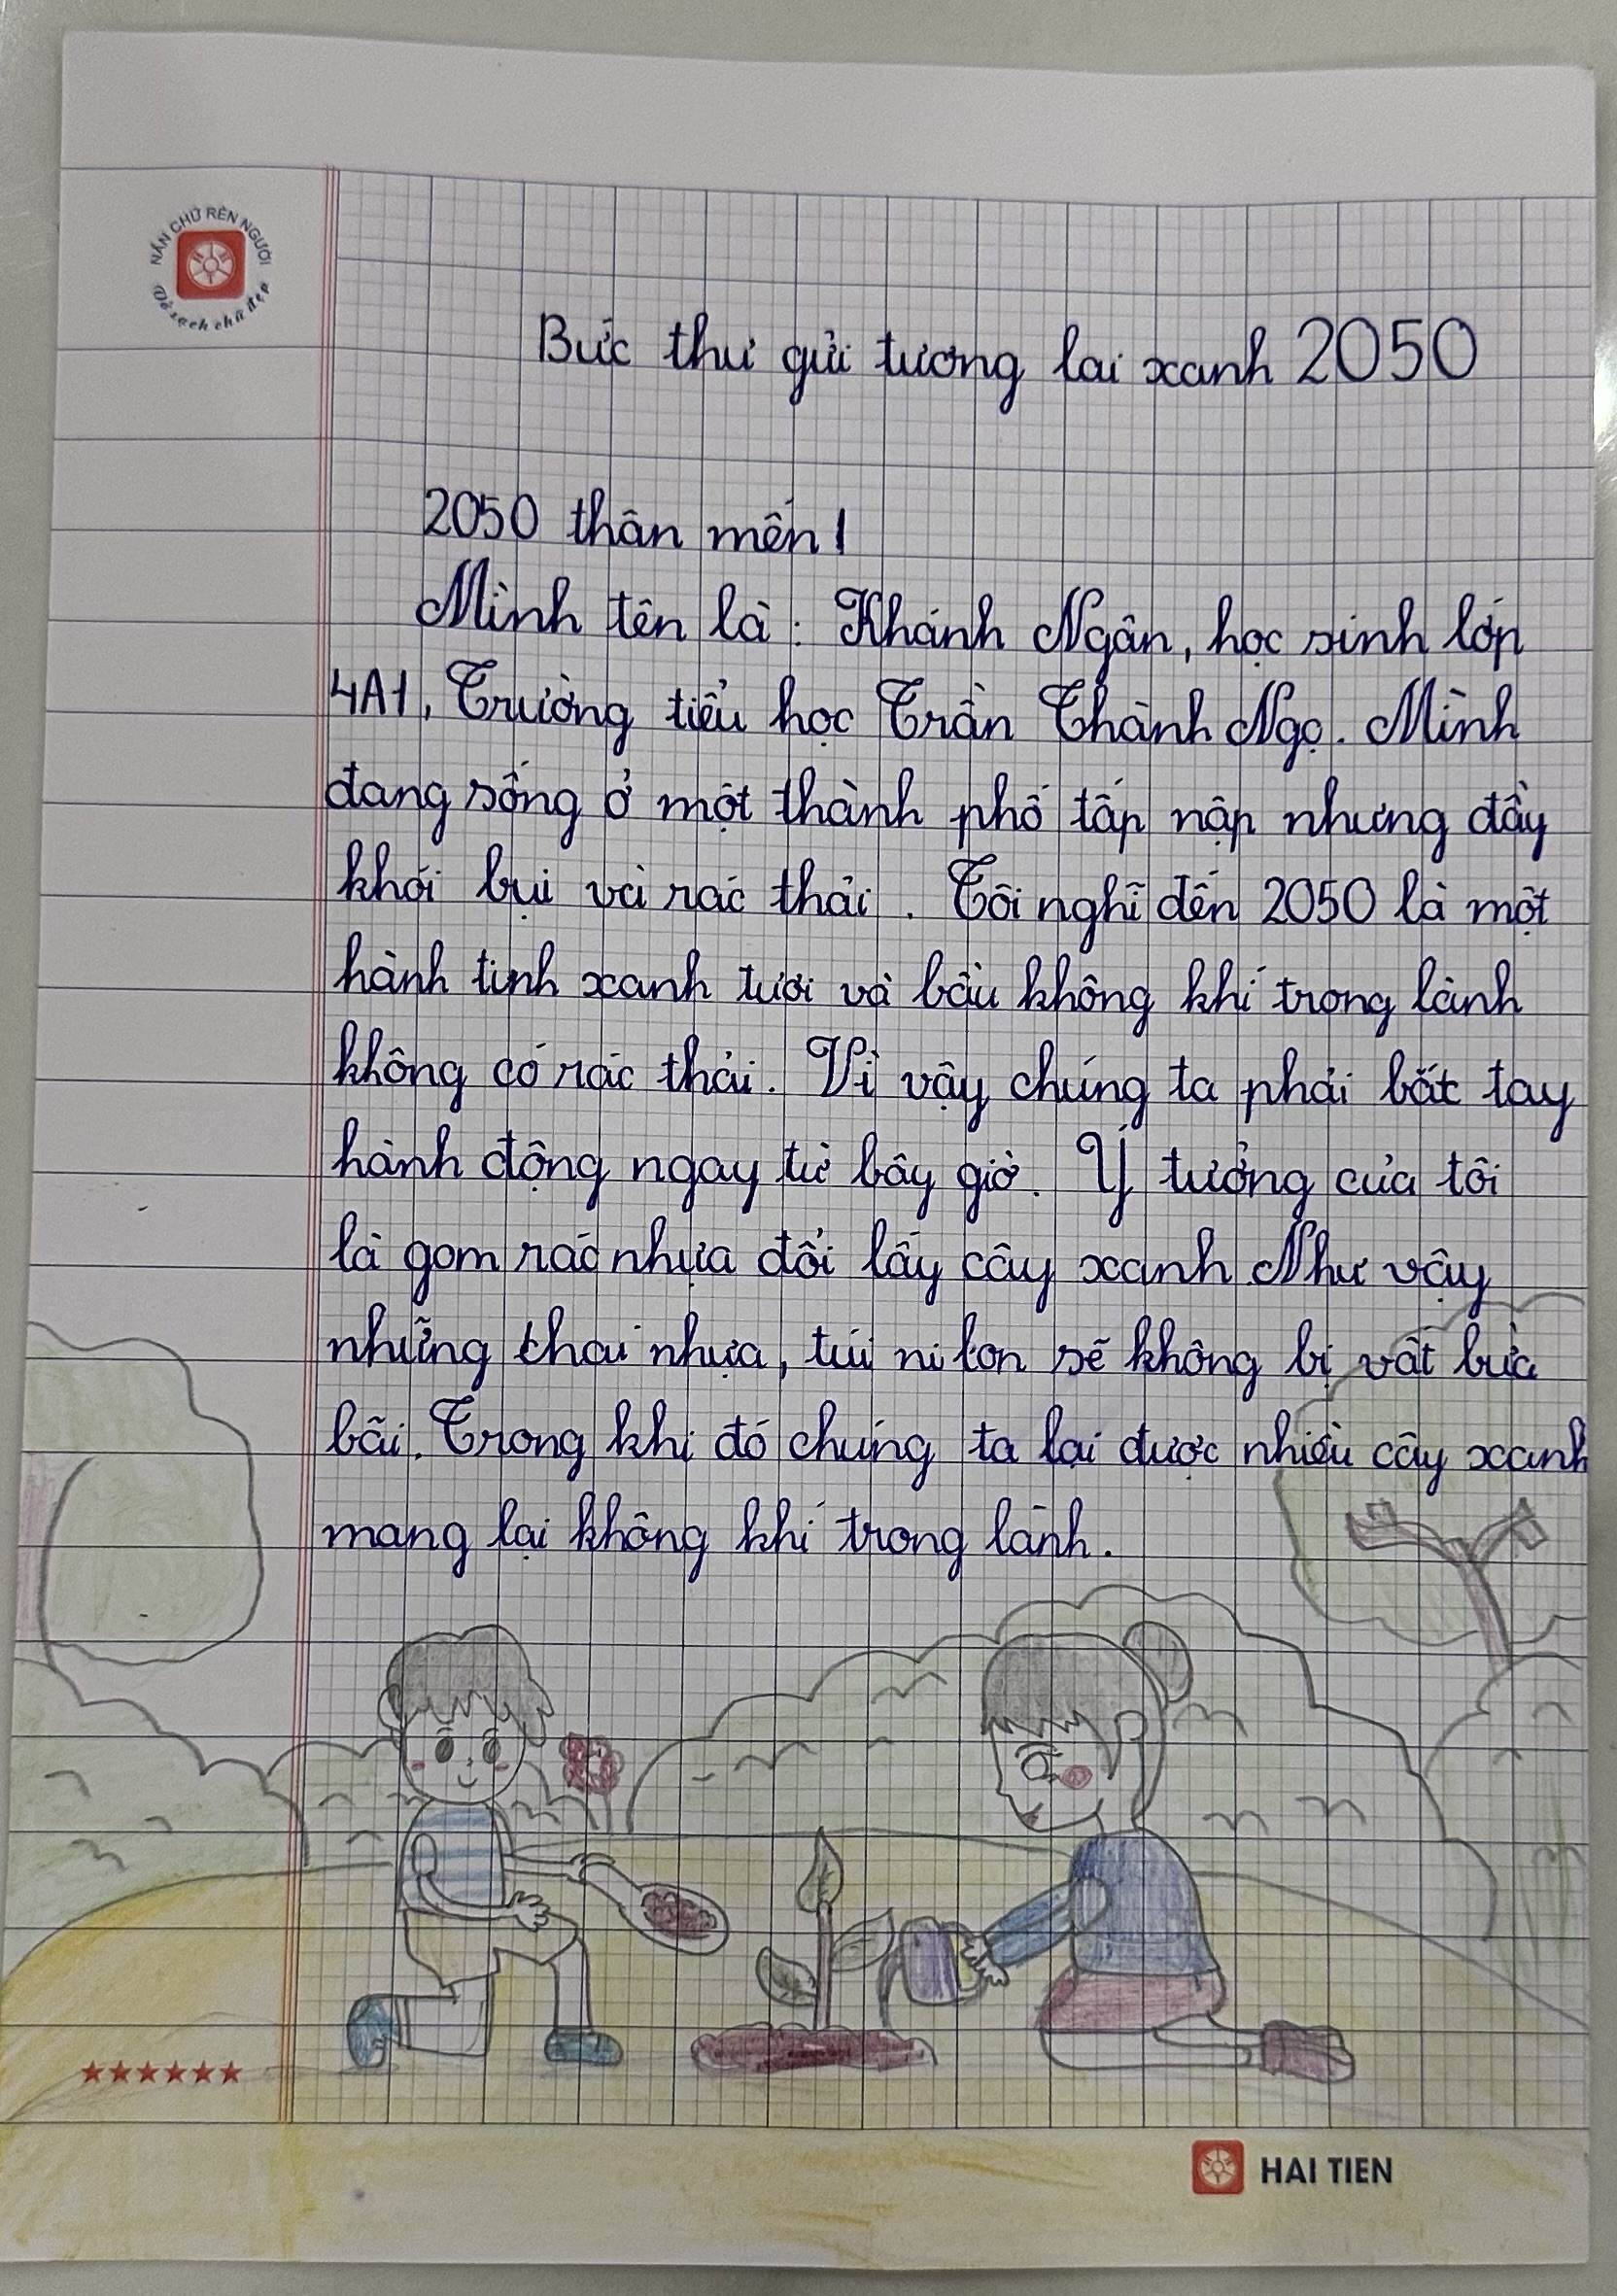 NẮN CHỮ RÈN NGƯỜI
Vở sạch chữ đẹp
Bức thư gửi tương lai xanh 2050
2050 thân mến!
Mình tên là : Khánh Ngân, học sinh lớp
4A1, Trường tiểu học Trần Thành Ngọ. Mình
đang sống ở một thành phố tấp nập nhưng đầy
khói bụi và rác thải. Tôi nghĩ đến 2050 là một
hành tinh xanh tươi và bầu không khí trong lành
không có rác thải. Vì vậy chúng ta phải bắt tay
hành động ngay từ bây giờ. Ý tưởng của tôi
là gom rác nhựa đổi lấy cây xanh. Như vậy
những chai nhựa, túi ni lon sẽ không bị vất bừa
bãi. Trong khi đó chúng ta lại được nhiều cây xanh
mang lại không khí trong lành.
HAI TIEN